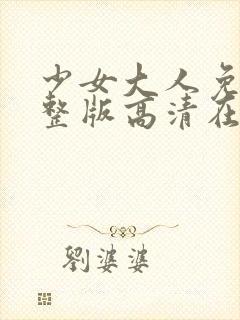 少女大人免
整版高清在
劉婆婆